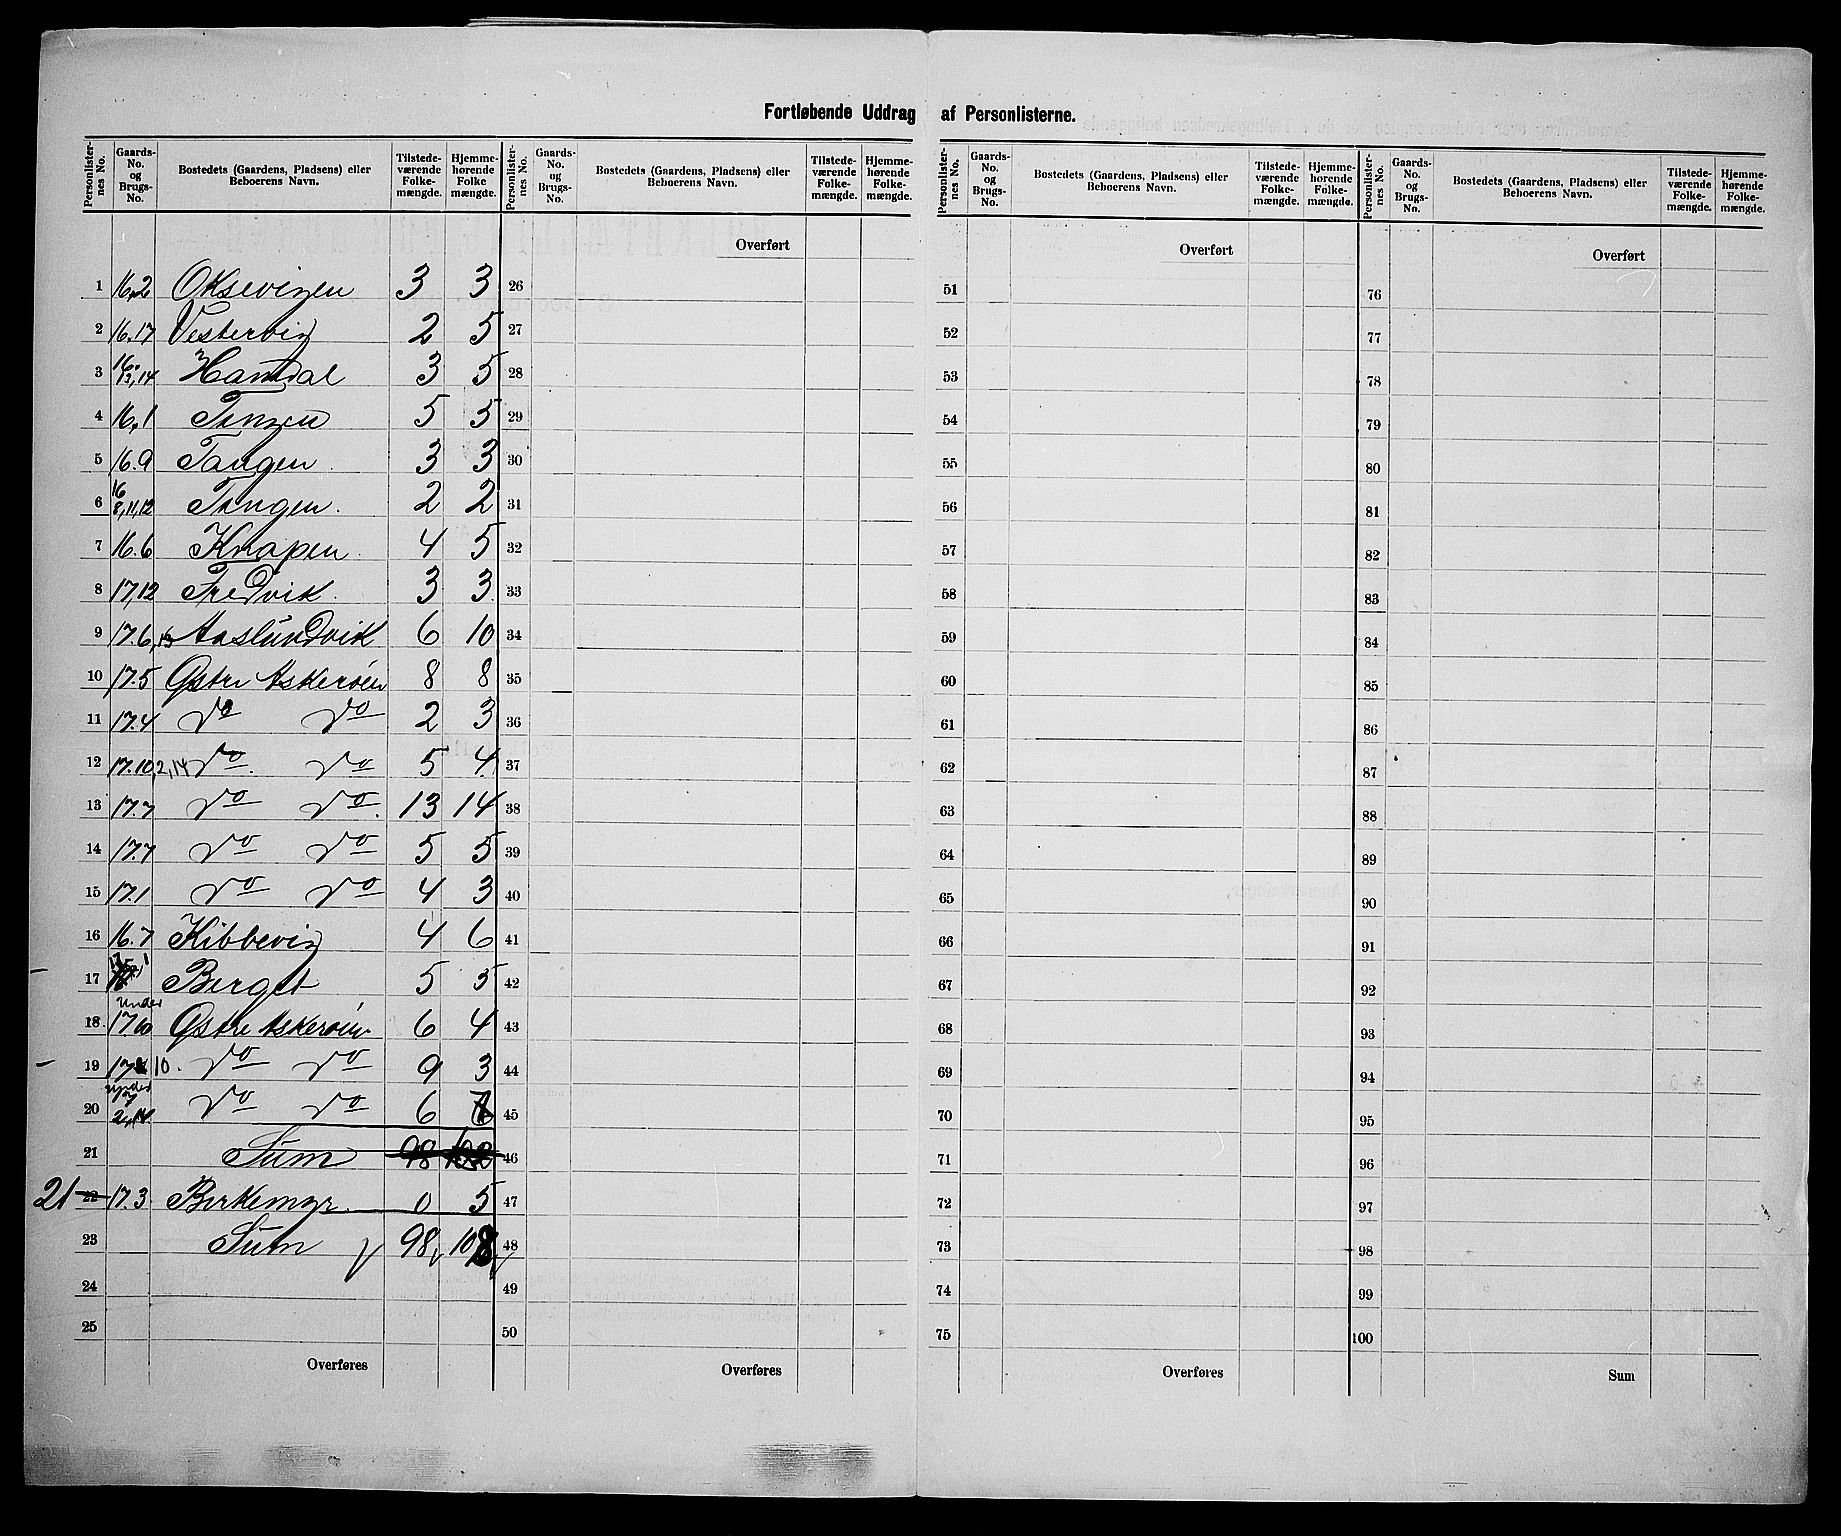 Fortløbende Uddrag af Personlisterne.
Personlister-nes No. Gaards-No. og Brugs-No. Bostedets (Gaardens, Pladsens) eller Beboerens Navn. Tilstede-værende Folke-mængde. Hjemme-hørende Folke mængde.
Personlister-nes No. Gaards-No. og Brugs-No. Bostedets (Gaardens, Pladsens) eller Beboerens Navn. Tilstede-værende Folke-mængde. Hjemme-hørende Folke-mængde.
Personlister-nes No. Gaards-No. og Brugs-No. Bostedets (Gaardens, Pladsens) eller Beboerens Navn. Tilstede-værende Folke-mængde. Hjemme-hørende Folke-mængde.
Personlister-nes No. Gaards-No. og Brugs-No. Bostedets (Gaardens, Pladsens) eller Beboerens Navn. Tilstede-værende Folke-mængde. Hjemme-hørende Folke-mængde.
Overført Overført Overført
1 16,2 Oksevigen 3 3 26 51 76
2 16,17 Vestervig 2 5 27 52 77
3 16. 13,14 Handal 3 5 28 53 78
4 16,1 Tangen 5 5 29 54 79
5 16.9 Tangen 3 3 30 55 80
6 16 8,11,12 Tangen. 2 2 31 56 81
7 16.6 Knapen. 4 5 32 57 82
8 17,12 Fredvik. 3 3 33 58 83
9 17.6,13 Aaslundvik 6 10 34 59 84
10 17.5 Østre Askerøen 8 8 35 60 85
11 17.4 Do Do 2 3 36 61 86
12 17.10,2,14 Do. Do 5 4 37 62 87
13 17.7 Do Do. 13 14 38 63 88
14 17.7 Do Do 5 5 39 64 89
15 17.1 Do Do 4 3 40 65 90
16 16.7 Kibbevig 4 6 41 66 91
17 Berget 5 5 42 67 92
18 under 17.10 Østre Askerøen 6 4 43 68 93
19 17 10. Do Do 9 3 44 69 94
20 under 17 2,14. Do Do 6 7 45 70 95
21 Sum 98 46 71 96
21 22 17.3 Birkemyr. 0 5 47 72 97
23 Sum 98 108 48 73 98
24 49 74 99
25 50 75 100
Overføres Overføres Overføres Sum